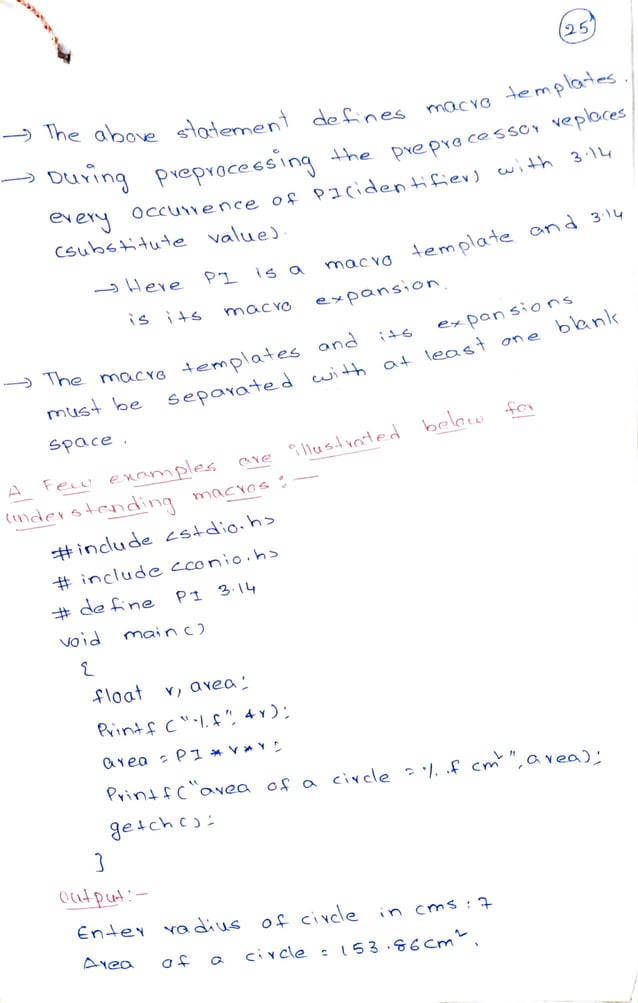 25
→ The above statement defines macro templates.
→ During preprocessing the preprocessor replaces
every occurrence of PI(identifier) with 3.14
(substitute value).
→ Here PI is a macro template and 3.14
is its macro expansion.
→ The macro templates and its expansions
must be separated with at least one blank
space.
A Few examples are illustrated below for
understanding macros:—
#include <stdio.h>
# include <conio.h>
# define PI 3.14
void main()
{
float r, area;
Printf ("%f", &r);
area = PI * r * r;
Printf("area of a circle = %.f cm²", area);
getch();
}
Output:-
Enter radius of circle in cms : 7
Area of a circle = 153.86cm².